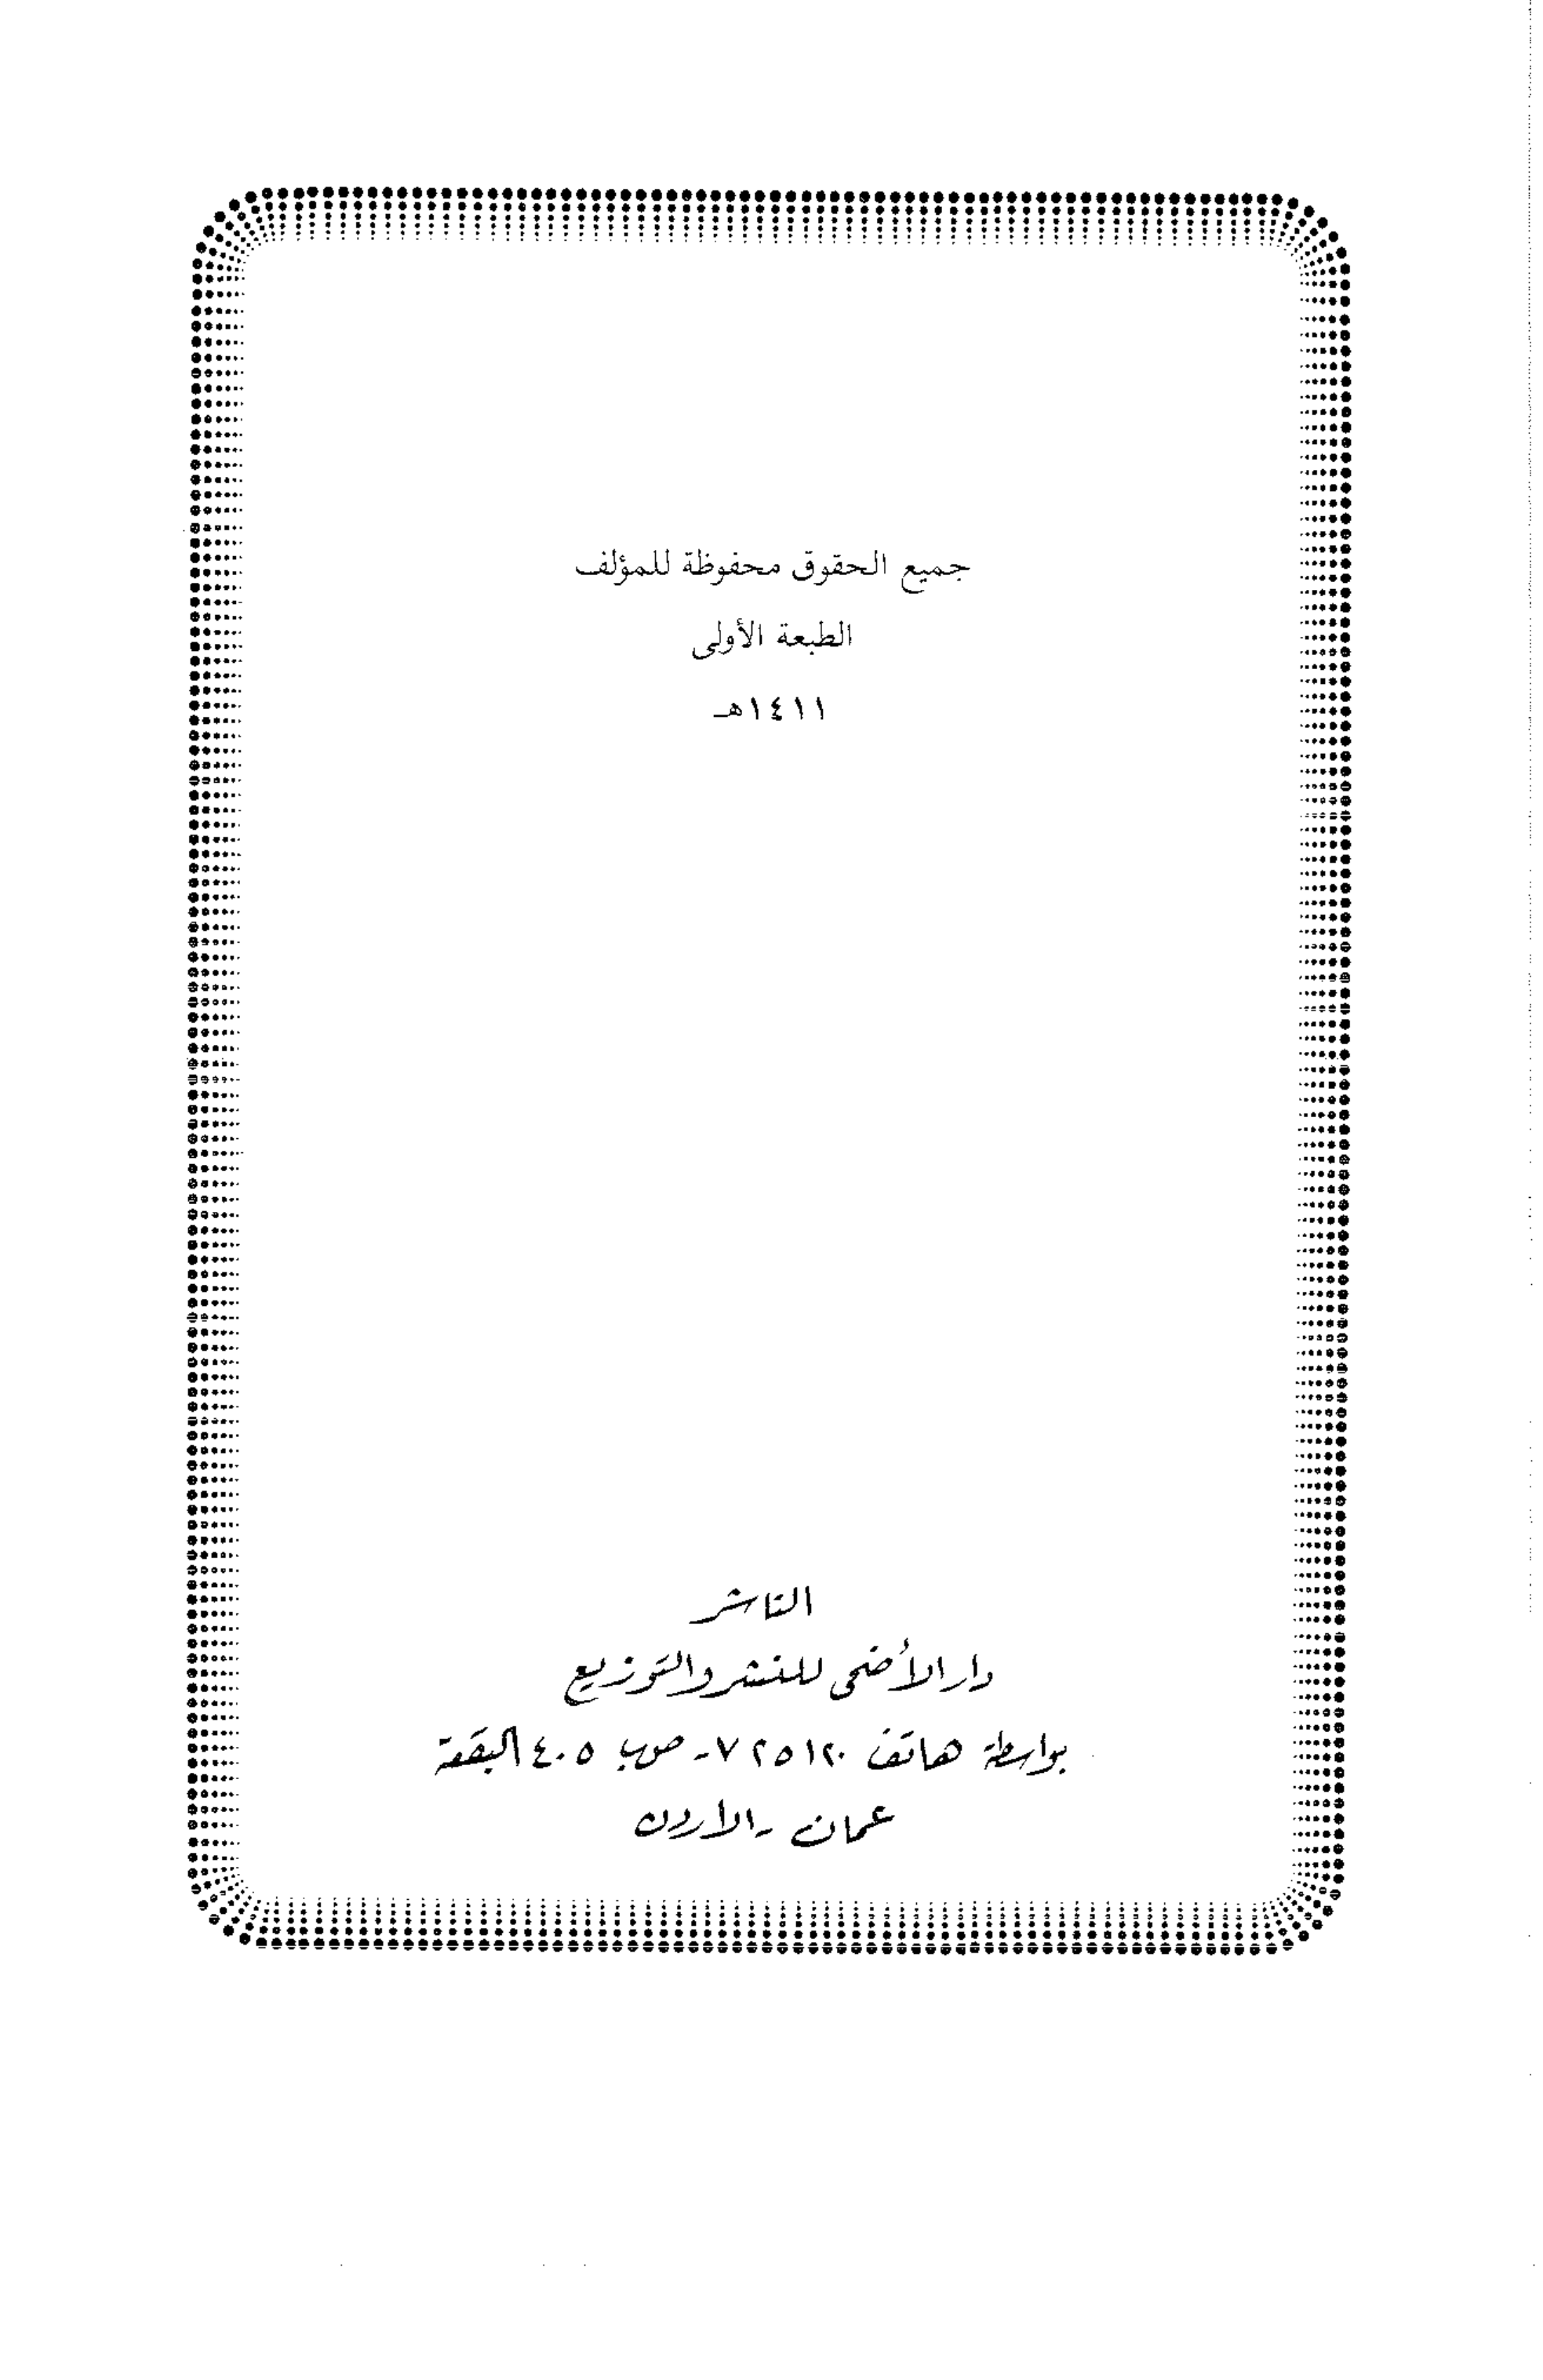 جميع الحقوق محفوظة للمؤلف
الطبعة الأولى
١٤١١هـ
الناشر
دار الأضحى للنشر والتوزيع
بواسطة هاتف ٧٢٥١٢٠ - ص.ب ٤٠٥ البقعة
عمان - الأردن